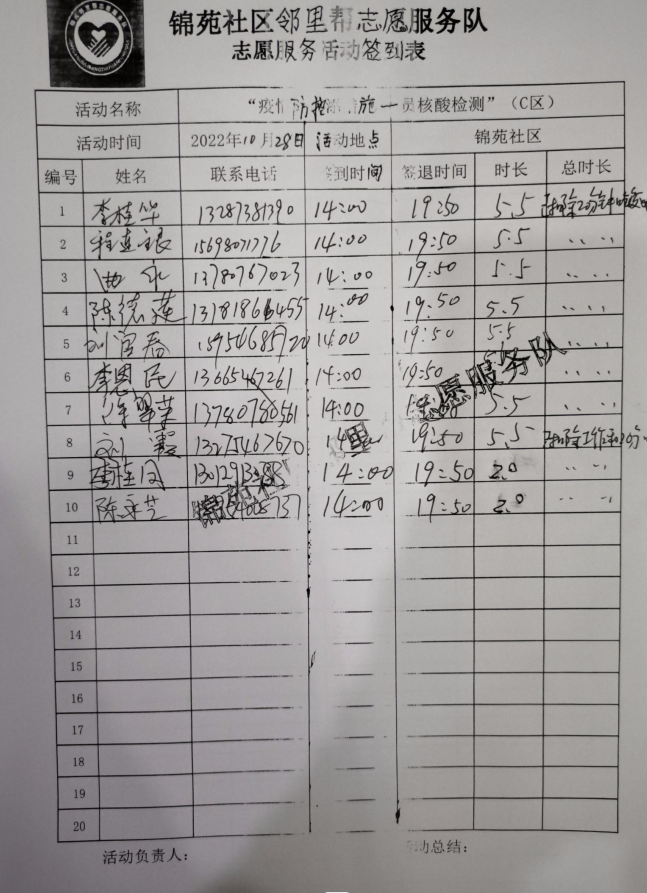 锦苑社区邻里帮志愿服务队
志愿服务活动签到表
活动名称 “疫情防控 施一 员核酸检测”（C区）
活动时间 2022年10月28日 活动地点 锦苑社区
编号 姓名 联系电话 签到时间 签退时间 时长 总时长
1 李桂华 13287381390 14:00 19:50 5.5
2 15698071776 14:00 19:50 5.5 〃
3 13780767023 14:00 19:50 5.5 〃
4 陈德莲 13181866455 14:00 19:50 5.5 〃
5 14:00 19:50 5.5 〃
6 李恩民 13665467261 14:00 19:50 〃
7 徐翠荣 13780780561 14:00 5.5 〃
8 刘霞 13275467670 19:50 5.5
9 14:00 19:50 2.0 〃
10 陈永芝 14:00 19:50 2.0 〃
锦苑社 邻里 志愿服务队
11
12
13
14
15
16
17
18
19
20
活动负责人： 活动总结：